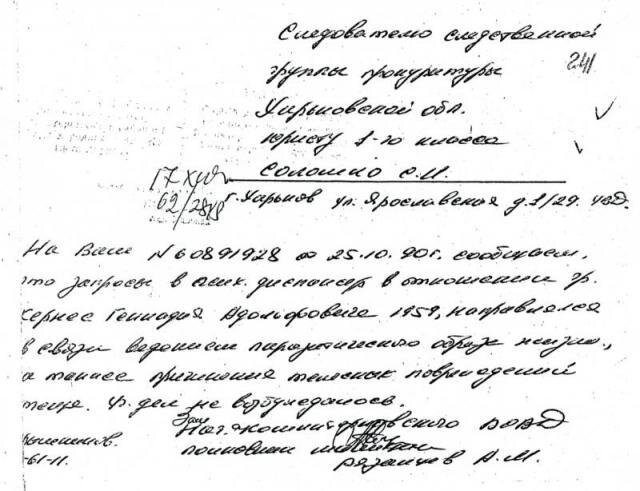 Следователю следственной
группы прокуратуры
241
Харьковской обл.
юристу 1-го класса
Солошко С.И.
17 XII
62/2818
г. Харьков ул. Ярославская д. 1/29.
На Ваш N 60891928 от 25.10.90г. сообщаем,
что запросы в псих. диспансер в отношении гр.
Кернес Геннадия Адольфовича 1959, направлялся
в связи ведением паразитического образа жизни,
а также причинения телесных повреждений
Уг. дел не возбуждалось.
Зам
Нач. Коминтерновского РОВД
полковник милиции
-61-11.
Рязанцев А.М.